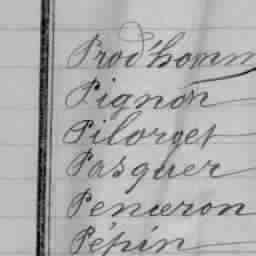 Prod'homm
Pignon
Pilorget
Pasquer
Penceron
Pépin